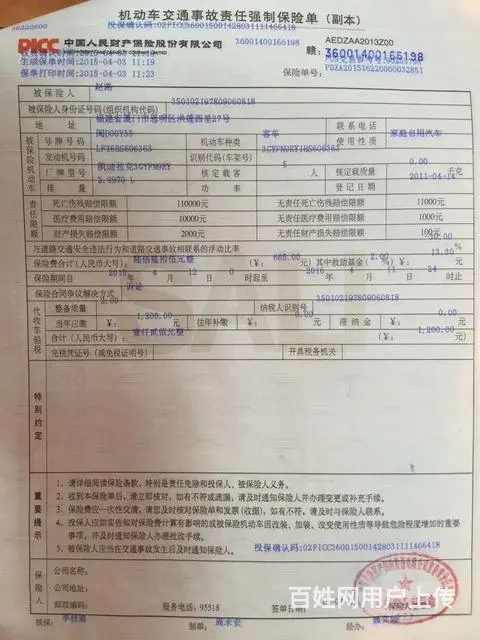 机动车交通事故责任强制保险单（副本）
36222600
投保确认码:02PICC360015001428031111466418
PICC 中国人民财产保险股份有限公司
36001400166198
AEDZAA2013Z00
赣: 36001400166198
生成保单时间:2015-04-03 11:19
保单打印时间:2015-04-03 11:23
保险单号: PDZA201536220000032851
被保险人 赵璐
被保险人身份证号码(组织机构代码) 350102197809060818
地址 福建省厦门市思明区洪莲西里27号 联系电话
被保险机动车
号牌号码 闽D00Y33 机动车种类 客车 使用性质 家庭自用汽车
发动机号 LFI6BS606363 识别代码(车架号) 3GYFN9EY1BS606363
厂牌型号 凯迪拉克3GYFN9EY 核定载客 5 人 核定载质量 0.00 千克
排量 2.9970 L 功率 登记日期 2011-04-14
责任限额
死亡伤残赔偿限额 110000元 无责任死亡伤残赔偿限额 11000元
医疗费用赔偿限额 10000元 无责任医疗费用赔偿限额 1000元
财产损失赔偿限额 2000元 无责任财产损失赔偿限额 100元
与道路交通安全违法行为和道路交通事故相联系的浮动比率 30.00 %
保险费合计(人民币大写): 陆佰陆拾伍元整 (¥: 665.00 元) 其中救助基金( 2.00 %)¥: 13.30 元
保险期间自 2015 年 4 月 12 日 0 时起至 2016 年 4 月 11 日 24 时止
保险合同争议解决方式 诉讼
代收车船税
整备质量 2.00 纳税人识别号 350102197809060818
当年应缴 ¥: 1,200.00 元 往年补缴 ¥: 0.00 元 滞纳金 ¥: 0.00 元
合计(人民币大写): 壹仟贰佰元整 (¥: 1,200.00 元)
完税凭证号(减免税证明号) 开具税务机关
特别约定
重要提示
1. 请详细阅读保险条款，特别是责任免除和投保人、被保险人义务。
2. 收到本保险单后，请立即核对，如有不符或疏漏，请及时通知保险人并办理变更或补充手续。
3. 保险费应一次性交清，请您及时核对保险单和发票(收据)，如有不符，请及时与保险人联系。
4. 投保人应如实告知对保险费计算有影响的或被保险机动车因改装、加装、改变使用性质等导致危险程度增加的重要
事项，并及时通知保险人办理批改手续。
5. 被保险人应当在交通事故发生后及时通知保险人。
投保确认码:02PICC360015001428031111466418
保险人
公司名称:
公司地址:
邮政编码: 服务电话: 95518 签单日期:
核保: 制单: 周求安 经办:
百姓网用户上传